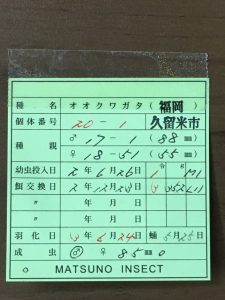 種 名 オオクワガタ (福岡)
個体番号 20-1 久留米市
種親 ♂ 17-1 (88 ㎜)
♀ 18-51 (55 ㎜)
幼虫投入日 2年6月26日
餌交換日 2年12月20日
〃 年 月 日
〃 年 月 日
羽化日 3年6月24日 蛹 5月25日
成 虫 ♂ ♀ 85.0
MATSUNO INSECT